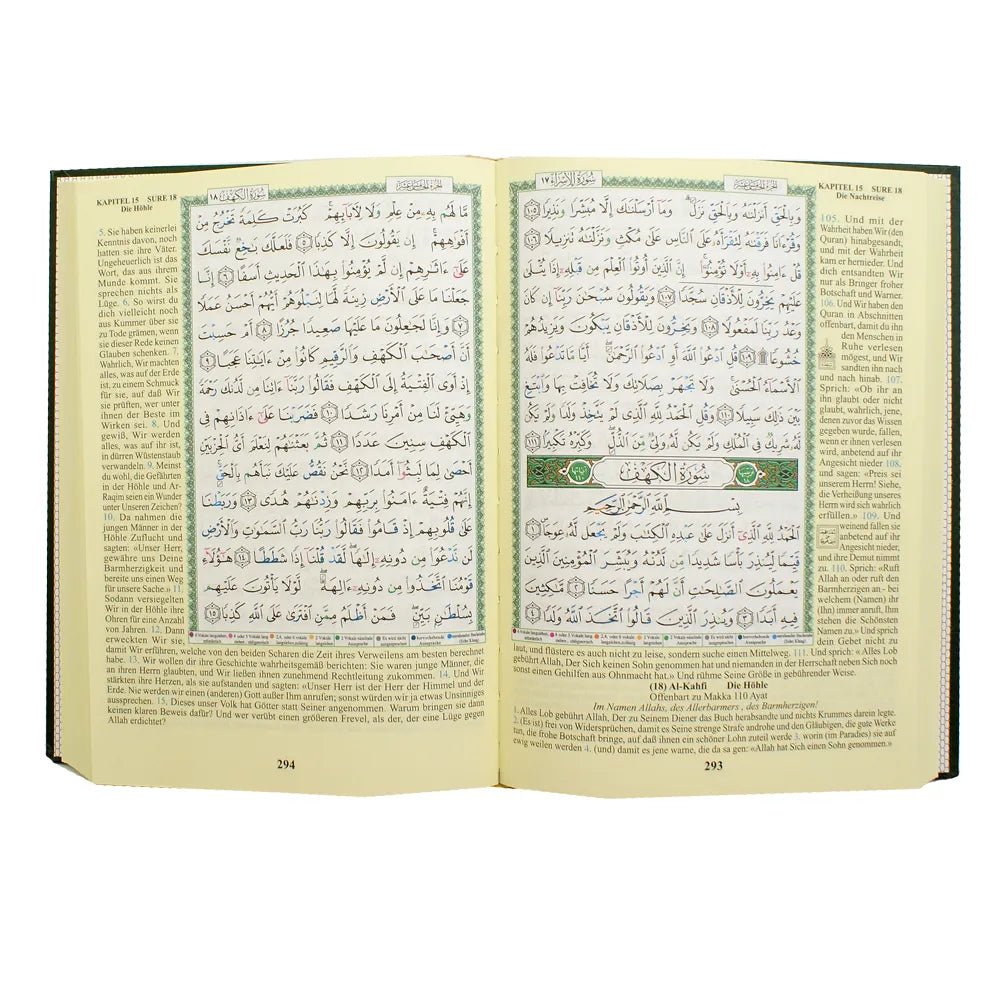 الجزء الخامس عشر
سُورَةُ الإِسْرَاءِ ١٧
وَبِالْحَقِّ أَنزَلْنَاهُ وَبِالْحَقِّ نَزَلَ ۗ وَمَا أَرْسَلْنَاكَ إِلَّا مُبَشِّرًا وَنَذِيرًا ١٠٥
وَقُرْءَانًا فَرَقْنَاهُ لِتَقْرَأَهُ عَلَى النَّاسِ عَلَىٰ مُكْثٍ وَنَزَّلْنَاهُ تَنزِيلًا ١٠٦
قُلْ ءَامِنُوا بِهِ أَوْ لَا تُؤْمِنُوا ۚ إِنَّ الَّذِينَ أُوتُوا الْعِلْمَ مِن قَبْلِهِ إِذَا يُتْلَىٰ
عَلَيْهِمْ يَخِرُّونَ لِلْأَذْقَانِ سُجَّدًا ١٠٧ وَيَقُولُونَ سُبْحَانَ رَبِّنَا إِن كَانَ
وَعْدُ رَبِّنَا لَمَفْعُولًا ١٠٨ وَيَخِرُّونَ لِلْأَذْقَانِ يَبْكُونَ وَيَزِيدُهُمْ
خُشُوعًا ۩ ١٠٩ قُلِ ادْعُوا اللَّهَ أَوِ ادْعُوا الرَّحْمَٰنَ ۖ أَيًّا مَّا تَدْعُوا فَلَهُ
الْأَسْمَاءُ الْحُسْنَىٰ ۚ وَلَا تَجْهَرْ بِصَلَاتِكَ وَلَا تُخَافِتْ بِهَا وَابْتَغِ
بَيْنَ ذَٰلِكَ سَبِيلًا ١١٠ وَقُلِ الْحَمْدُ لِلَّهِ الَّذِي لَمْ يَتَّخِذْ وَلَدًا وَلَمْ يَكُن
لَّهُ شَرِيكٌ فِي الْمُلْكِ وَلَمْ يَكُن لَّهُ وَلِيٌّ مِّنَ الذُّلِّ ۖ وَكَبِّرْهُ تَكْبِيرًا ١١١
سُورَةُ الْكَهْفِ
بِسْمِ اللَّهِ الرَّحْمَٰنِ الرَّحِيمِ
الْحَمْدُ لِلَّهِ الَّذِي أَنزَلَ عَلَىٰ عَبْدِهِ الْكِتَابَ وَلَمْ يَجْعَل لَّهُ عِوَجًا ١
قَيِّمًا لِّيُنذِرَ بَأْسًا شَدِيدًا مِّن لَّدُنْهُ وَيُبَشِّرَ الْمُؤْمِنِينَ الَّذِينَ
يَعْمَلُونَ الصَّالِحَاتِ أَنَّ لَهُمْ أَجْرًا حَسَنًا ٢ مَّاكِثِينَ
فِيهِ أَبَدًا ٣ وَيُنذِرَ الَّذِينَ قَالُوا اتَّخَذَ اللَّهُ وَلَدًا ٤
KAPITEL 15 SURE 18
Die Nachtreise
105. Und mit der
Wahrheit haben Wir (den
Quran) hinabgesandt,
und mit der Wahrheit
kam er hernieder. Und
dich entsandten Wir
nur als Bringer froher
Botschaft und Warner.
106. Und Wir haben den
Quran in Abschnitten
offenbart, damit du ihn
den Menschen in
Ruhe verlesen
mögest, und Wir
sandten ihn nach
und nach hinab. 107.
Sprich: «Ob ihr an
ihn glaubt oder nicht
glaubt, wahrlich, jene,
denen zuvor das Wissen
gegeben wurde, fallen,
wenn er ihnen verlesen
wird, anbetend auf ihr
Angesicht nieder 108.
und sagen: «Preis sei
unserem Herrn! Siehe,
die Verheißung unseres
Herrn wird sich wahrlich
erfüllen.» 109. Und
weinend fallen sie
anbetend auf ihr
Angesicht nieder,
und ihre Demut nimmt
zu. 110. Sprich: «Ruft
Allah an oder ruft den
Barmherzigen an - bei
welchem (Namen) ihr
(Ihn) immer anruft, Ihm
stehen die Schönsten
Namen zu.» Und sprich
dein Gebet nicht zu
laut, und flüstere es auch nicht zu leise, sondern suche einen Mittelweg. 111. Und sprich: «Alles Lob
gebührt Allah, Der Sich keinen Sohn genommen hat und niemanden in der Herrschaft neben Sich noch
sonst einen Gehilfen aus Ohnmacht hat.» Und rühme Seine Größe in gebührender Weise.
(18) Al-Kahfi Die Höhle
Offenbart zu Makka 110 Ayat
Im Namen Allahs, des Allerbarmers , des Barmherzigen!
1. Alles Lob gebührt Allah, Der zu Seinem Diener das Buch herabsandte und nichts Krummes darein legte.
2. (Es ist) frei von Widersprüchen, damit es Seine strenge Strafe androhe und den Gläubigen, die gute Werke
tun, die frohe Botschaft bringe, auf daß ihnen ein schöner Lohn zuteil werde 3. worin (im Paradies) sie auf
ewig weilen werden 4. (und) damit es jene warne, die da sa gen: «Allah hat Sich einen Sohn genommen.»
293
الجزء الخامس عشر
سُورَةُ الْكَهْفِ ١٨
مَّا لَهُم بِهِ مِنْ عِلْمٍ وَلَا لِآبَائِهِمْ ۚ كَبُرَتْ كَلِمَةً تَخْرُجُ مِنْ
أَفْوَاهِهِمْ ۚ إِن يَقُولُونَ إِلَّا كَذِبًا ٥ فَلَعَلَّكَ بَاخِعٌ نَّفْسَكَ
عَلَىٰ ءَاثَارِهِمْ إِن لَّمْ يُؤْمِنُوا بِهَٰذَا الْحَدِيثِ أَسَفًا ٦ إِنَّا
جَعَلْنَا مَا عَلَى الْأَرْضِ زِينَةً لَّهَا لِنَبْلُوَهُمْ أَيُّهُمْ أَحْسَنُ عَمَلًا
٧ وَإِنَّا لَجَاعِلُونَ مَا عَلَيْهَا صَعِيدًا جُرُزًا ٨ أَمْ حَسِبْتَ
أَنَّ أَصْحَابَ الْكَهْفِ وَالرَّقِيمِ كَانُوا مِنْ ءَايَاتِنَا عَجَبًا ٩
إِذْ أَوَى الْفِتْيَةُ إِلَى الْكَهْفِ فَقَالُوا رَبَّنَا ءَاتِنَا مِن لَّدُنكَ رَحْمَةً
وَهَيِّئْ لَنَا مِنْ أَمْرِنَا رَشَدًا ١٠ فَضَرَبْنَا عَلَىٰ ءَاذَانِهِمْ فِي
الْكَهْفِ سِنِينَ عَدَدًا ١١ ثُمَّ بَعَثْنَاهُمْ لِنَعْلَمَ أَيُّ الْحِزْبَيْنِ
أَحْصَىٰ لِمَا لَبِثُوا أَمَدًا ١٢ نَّحْنُ نَقُصُّ عَلَيْكَ نَبَأَهُم بِالْحَقِّ ۚ
إِنَّهُمْ فِتْيَةٌ ءَامَنُوا بِرَبِّهِمْ وَزِدْنَاهُمْ هُدًى ١٣ وَرَبَطْنَا
عَلَىٰ قُلُوبِهِمْ إِذْ قَامُوا فَقَالُوا رَبُّنَا رَبُّ السَّمَاوَاتِ وَالْأَرْضِ
لَن نَّدْعُوَا مِن دُونِهِ إِلَٰهًا ۖ لَّقَدْ قُلْنَا إِذًا شَطَطًا ١٤ هَٰؤُلَاءِ
قَوْمُنَا اتَّخَذُوا مِن دُونِهِ ءَالِهَةً ۖ لَّوْلَا يَأْتُونَ عَلَيْهِم
بِسُلْطَانٍ بَيِّنٍ ۖ فَمَنْ أَظْلَمُ مِمَّنِ افْتَرَىٰ عَلَى اللَّهِ كَذِبًا ١٥
KAPITEL 15 SURE 18
Die Höhle
5. Sie haben keinerlei
Kenntnis davon, noch
hatten sie ihre Väter.
Ungeheuerlich ist das
Wort, das aus ihrem
Munde kommt. Sie
sprechen nichts als
Lüge. 6. So wirst du
dich vielleicht noch
aus Kummer über sie
zu Tode grämen, wenn
sie dieser Rede keinen
Glauben schenken. 7.
Wahrlich, Wir machten
alles, was auf der Erde
ist, zu einem Schmuck
für sie, auf daß Wir
sie prüften, wer unter
ihnen der Beste im
Wirken sei. 8. Und
gewiß, Wir werden
alles, was auf ihr ist,
in dürren Wüstenstaub
verwandeln. 9. Meinst
du wohl, die Gefährten
in der Höhle und Ar-
Raqim seien ein Wunder
unter Unseren Zeichen?
10. Da nahmen die
jungen Männer in der
Höhle Zuflucht und
sagten: «Unser Herr,
gewähre uns Deine
Barmherzigkeit und
bereite uns einen Weg
für unsere Sache.» 11.
Sodann versiegelten
Wir in der Höhle ihre
Ohren für eine Anzahl
von Jahren. 12. Dann
erweckten Wir sie auf,
damit Wir erführen, welche von den beiden Scharen die Zeit ihres Verweilens am besten berechnet
habe. 13. Wir wollen dir ihre Geschichte wahrheitsgemäß berichten: Sie waren junge Männer, die
an ihren Herrn glaubten, und Wir ließen ihnen zunehmend Rechtleitung zukommen. 14. Und Wir
stärkten ihre Herzen, als sie aufstanden und sagten: «Unser Herr ist der Herr der Himmel und der
Erde. Nie werden wir einen (anderen) Gott außer Ihm anrufen; sonst würden wir ja etwas Unsinniges
aussprechen. 15. Dieses unser Volk hat Götter statt Seiner angenommen. Warum bringen sie dann
keinen klaren Beweis dafür? Und wer verübt einen größeren Frevel, als der, der eine Lüge gegen
Allah erdichtet?
294